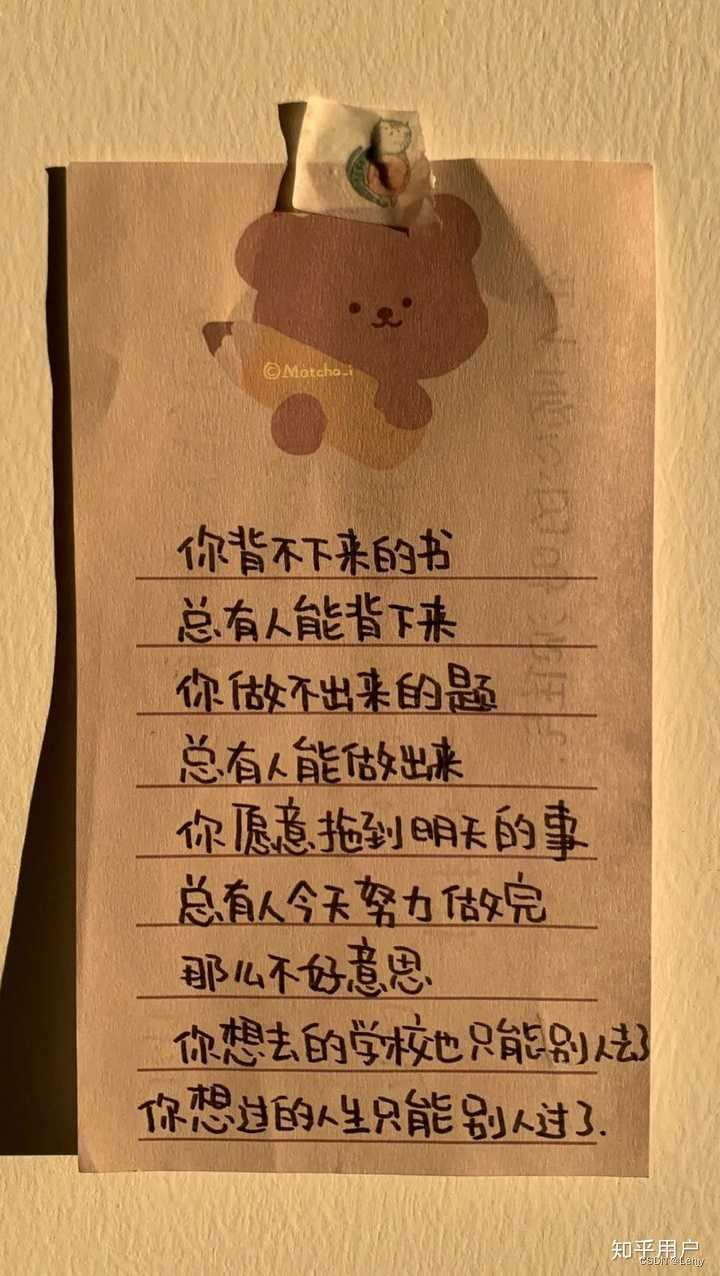 ©Matcha_i
你背不下来的书
总有人能背下来
你做不出来的题
总有人能做出来
你愿意拖到明天的事
总有人今天努力做完
那么不好意思
你想去的学校也只能别人去了
你想过的人生只能别人过了.
知乎用户